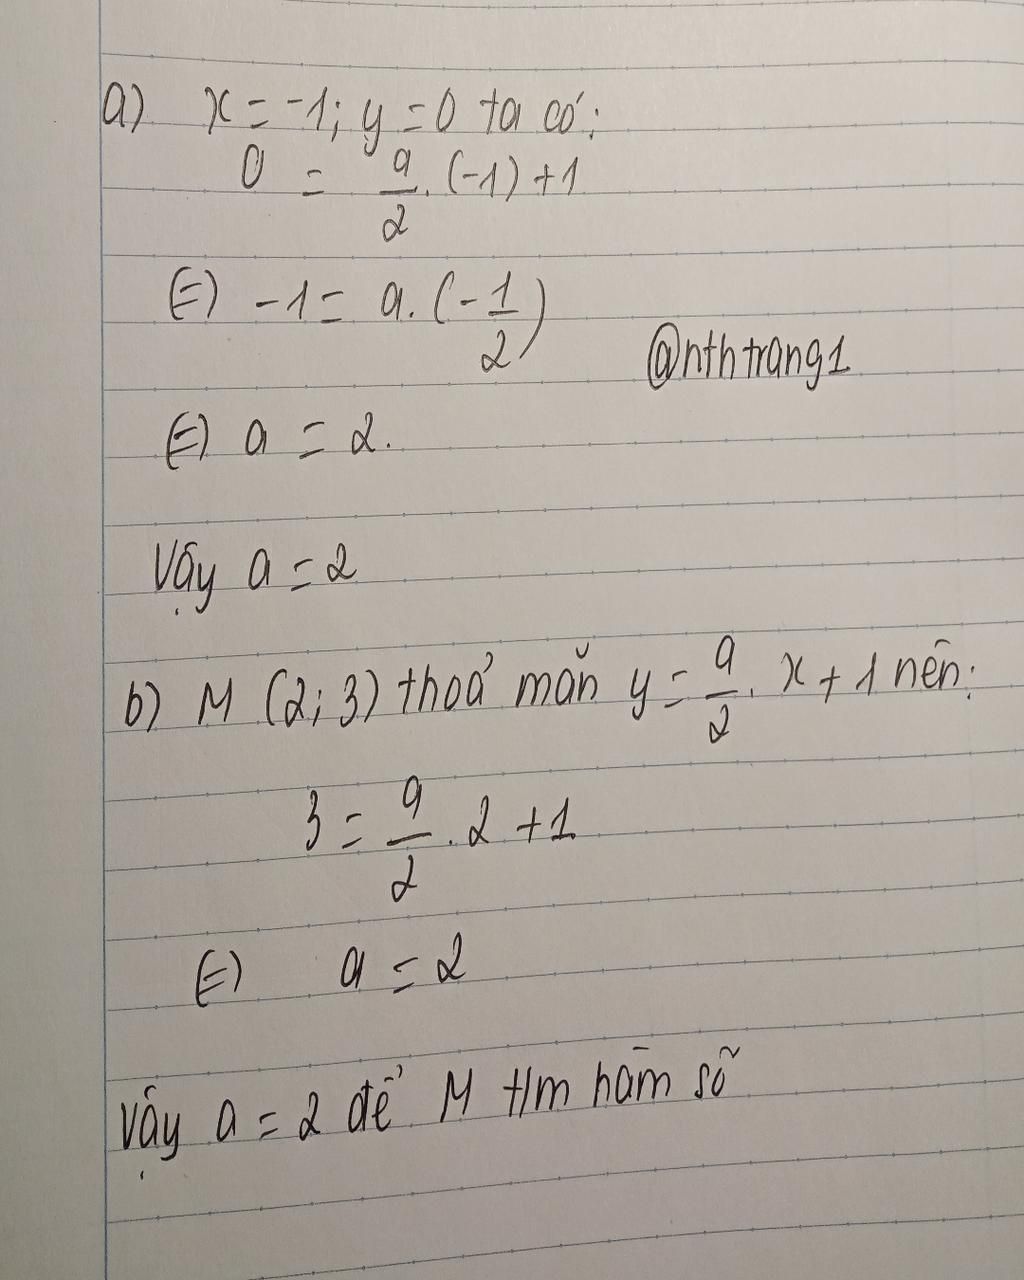 a) x = -1; y = 0 ta có:
0 = a/2 . (-1) + 1
(=) -1 = a. (-1/2)
@nthtrang1
(=) a = 2.
Vậy a = 2
b) M (2; 3) thoả mãn y = a/2 . x + 1 nên:
3 = a/2 . 2 + 1
(=) a = 2
Vậy a = 2 để M t/m hàm số